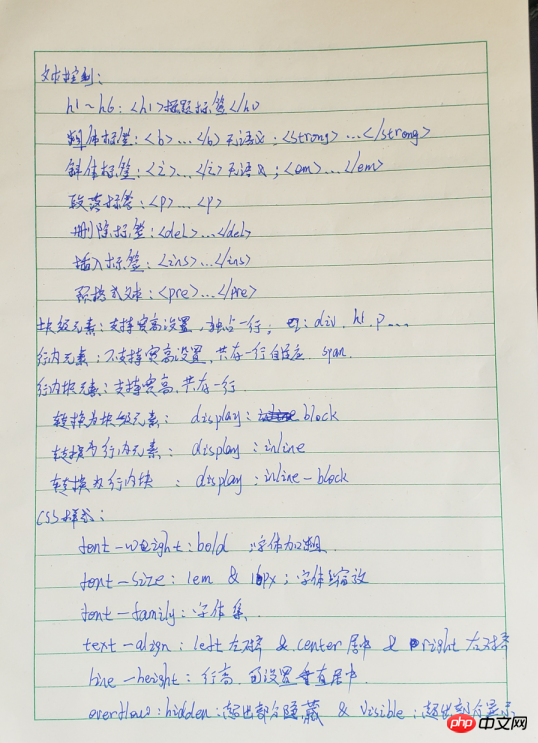 文本控制：
h1~h6：<h1>标题标签</h1>
粗体标签：<b>...</b>无语义；<strong>...</strong>
斜体标签：<i>...</i>无语义；<em>...</em>
段落标签：<p>...<p>
删除标签：<del>...</del>
插入标签：<ins>...</ins>
预格式文本：<pre>...</pre>
块级元素：支持宽高设置，独占一行； 如：div. h1. p...
行内元素：不支持宽高设置，共存一行自适应. span.
行内块元素：支持宽高，共存一行.
转换为块级元素： display：block
转换为行内元素： display：inline
转换为行内块 ： display：inline-block
CSS样式：
font-weight：bold 字体加粗.
font-size：1em & 16px；字体缩放
font-family：字体集.
text-align：left左对齐 & center居中 & right右对齐
line-height：行高，可设置垂直居中.
overflow：hidden：超出部分隐藏 & visible：超出部分显示
php中文网